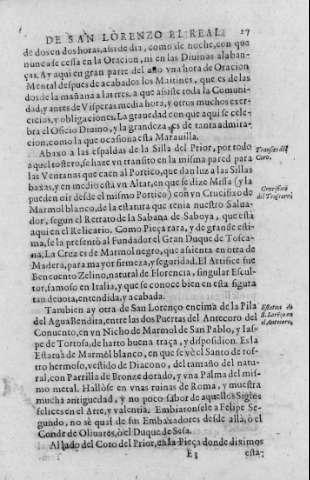 DE SAN LORENZO EL REAL. 27
de dos en dos horas, assi de dia, como de noche, con que
nunca se cessa en la Oracion, ni en las Diuinas alaban-
ças. Ay aqui en gran parte del año vna hora de Oracion
Mental despues de acabados los Maitines, que es de las
dos de la mañana a las tres, a que assiste toda la Comuni-
dad, y antes de Visperas media hora, y otros muchos exer-
cicios, y obligaciones. La grauedad con que aqui se cele-
bra el Oficio Diuino, y la grandeza es de tanta admira-
cion, como la que ocasiona esta Marauilla.
Abaxo a las espaldas de la Silla del Prior, por todo
aquel testero, se haze vn transito en la misma pared para
las Ventanas que caen al Portico, que dan luz a las Sillas
baxas, y en medio està vn Altar, en que se dize Missa (y la
pueden oir desde el mismo Portico) con vn Crucifixo de
Marmol blanco, de la estatura que tenia nuestro Salua-
dor, segun el Retrato de la Sabana de Saboya, que està
aqui en el Relicario. Como Pieça rara, y de grande esti-
ma, se la presentò al Fundador el Gran Duque de Tosca-
na; La Cruz es de Marmol negro, que assienta en otra de
Madera, para mayor firmeza, y segaridad. El Artifice fue
Benuenuto Zelino, natural de Florencia, singular Escul-
tor, famoso en Italia, y que se conoce bien en esta figura
tan deuota, entendida, y acabada.
Tambien ay otra de San Lorenço encima de la Pila
del Agua Bendita, entre las dos Puertas del Antecoro del
Conuento, en vn Nicho de Marmol de San Pablo, y Ias-
pe de Tortosa, de harto buena traça, y disposidion. Es la
Estatua de Marmol blanco, en que se vè el Santo de ros-
tro hermoso, vestido de Diacono, del tamaño del natu-
ral, con Parrilla de Bronze dorado, y vna Palma del mis-
mo metal. Hallòse en vnas ruinas de Roma, y muestra
mucha antiguedad, y no poco sabor de aquellos Siglos
felices en el Arte, y valentia. Embiaronsele a Felipe Se-
gundo, no sè qual de sus Embaxadores desde allà, ò el
Conde de Oliuares, ò el Duque de Sesa.
Al lado del Coro del Prior, en la Pieça donde diximos
E 3 esta-
Transito del
Coro.
Crucifixo
del Trascoro.
Estatua de
S. Lorenço en
el Antecoro.